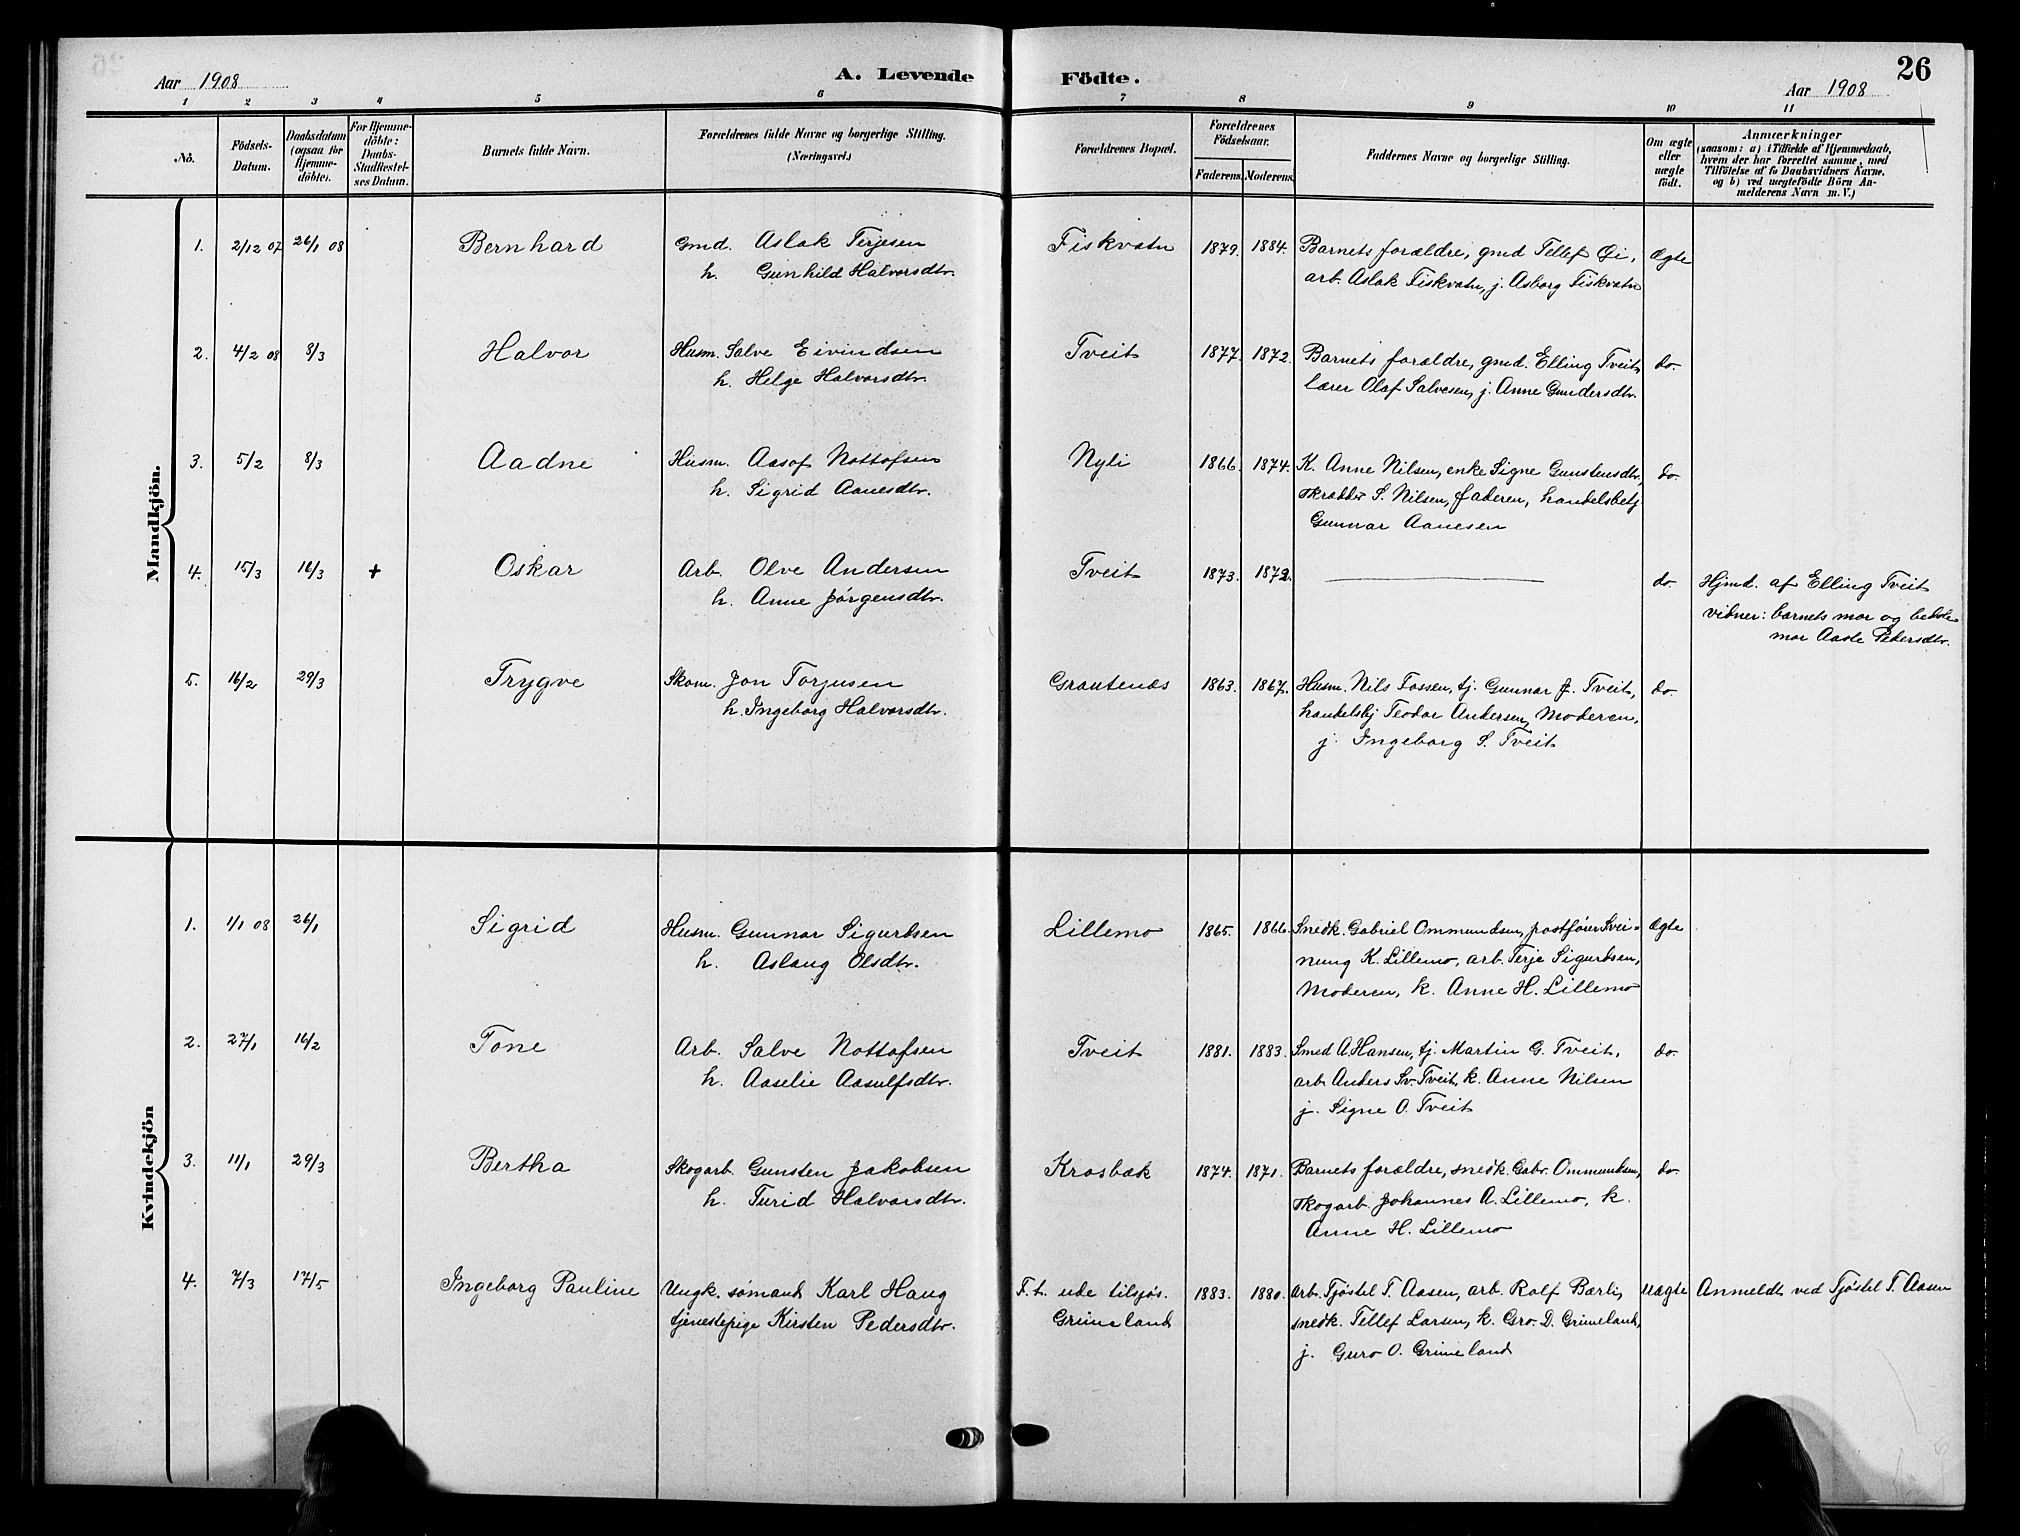 Aar 1908
A. Levende
Födte.
Aar 1908
26
1 2 3 4 5 6 7 8 9 10 11
No.
Födsels-
Datum.
Daabsdatum
(ogsaa for
Hjemme-
döbte).
For Hjemme-
döbte:
Daabs-
Stadfæstel-
ses Datum.
Barnets fulde Navn.
Forældrenes fulde Navne og borgerlige Stilling.
(Næringsvei.)
Forældrenes Bopæl.
Forældrenes
Födselsaar.
Faderens. Moderens.
Faddernes Navne og borgerlige Stilling.
Om ægte
eller
uægte
født.
Anmærkninger
(saasom: a) i Tilfælde af Hjemmedaab,
hvem der har forrettet samme, med
Tilføielse af to Daabsvidners Navne,
og b) ved uægtefödte Börn An-
melderens Navn m. V.)
Mandkjön.
1. 2/12 07 26/1 08 Bernhard Gmd. Aslak Terjesen Fiskvatn 1879. 1884. Barnets forældre, gmd Tellef Øi, Ægte
h. Gunhild Halvorsdtr. arb. Aslak Fiskvatn, j. Asborg Fiskvatn
2. 4/2 08 8/3 Halvor Husm. Salve Eivindsen Tveit 1877. 1872. Barnets forældre, gmd. Elling Tveit, do.
h. Helge Halvorsdtr. lærer Olaf Salvesen, j. Anne Gundersdtr.
3. 5/2 8/3 Aadne Husm. Aasof Nottofsen Nyli 1866. 1874. K. Anne Nilsen, enke Signe Gunstensdtr, do.
h. Sigrid Aanesdtr. skrædder S. Nilsen, faderen, handelsbetj.
Gunnar Aanesen
4. 15/3 16/3 + Oskar Arb. Olve Andersen Tveit 1873. 1872. do Hjmd. af Elling Tveit
h. Anne Jörgensdtr. vidner: barnets mor og bedste-
mor Aaste Pedersdtr.
5. 16/2 29/3 Trygve Skom. Jon Torjusen Grautenes 1863. 1867. Husm. Nils Fossen, tj. Gunnar J. Tveit, do.
h. Ingeborg Halvorsdtr. handelsbj Teodor Andersen, Moderen,
j. Ingeborg S. Tveit
Kvindekjön
1. 1/1 08 26/1 Sigrid Husm. Gunnar Sigurdsen Lillemo 1865. 1866. Snedk. Gabriel Ommundsen, postfører Svei- Ægte
h. Aslaug Olsdtr. nung K. Lillemo, arb. Terje Sigurdsen,
Moderen, k. Anne H. Lillemo
2. 27/1 16/2 Tone Arb. Salve Nottofsen Tveit 1881. 1883. Smed A. Hansen, tj. Martin G. Tveit, do.
h. Aaselie Aasulfsdtr. arb. Anders Sv. Tveit, k. Anne Nilsen
j. Signe O. Tveit
3. 11/1 29/3 Bertha Skogarb. Gunsten Jakobsen Krosbæk 1874. 1871. Barnets forældre, snedk. Gabr. Ommundsen, do.
h. Turid Halvorsdtr. skogarb. Johannes A. Lillemo, k.
Anne H. Lillemo
4. 7/3 17/5 Ingeborg Pauline Ungk. sømand Karl Haug F. t. ude tilsjøs. 1883. 1880. Arb. Tjøstel T. Aasen, arb. Rolf Bærli, Uægte Anmeldt ved Tjøstel T. Aasen
tjenestepige Kirsten Pedersdtr. Grimeland snedk. Tellef Larsen, k. Gro. D. Grimeland,
j. Guro O. Grimeland